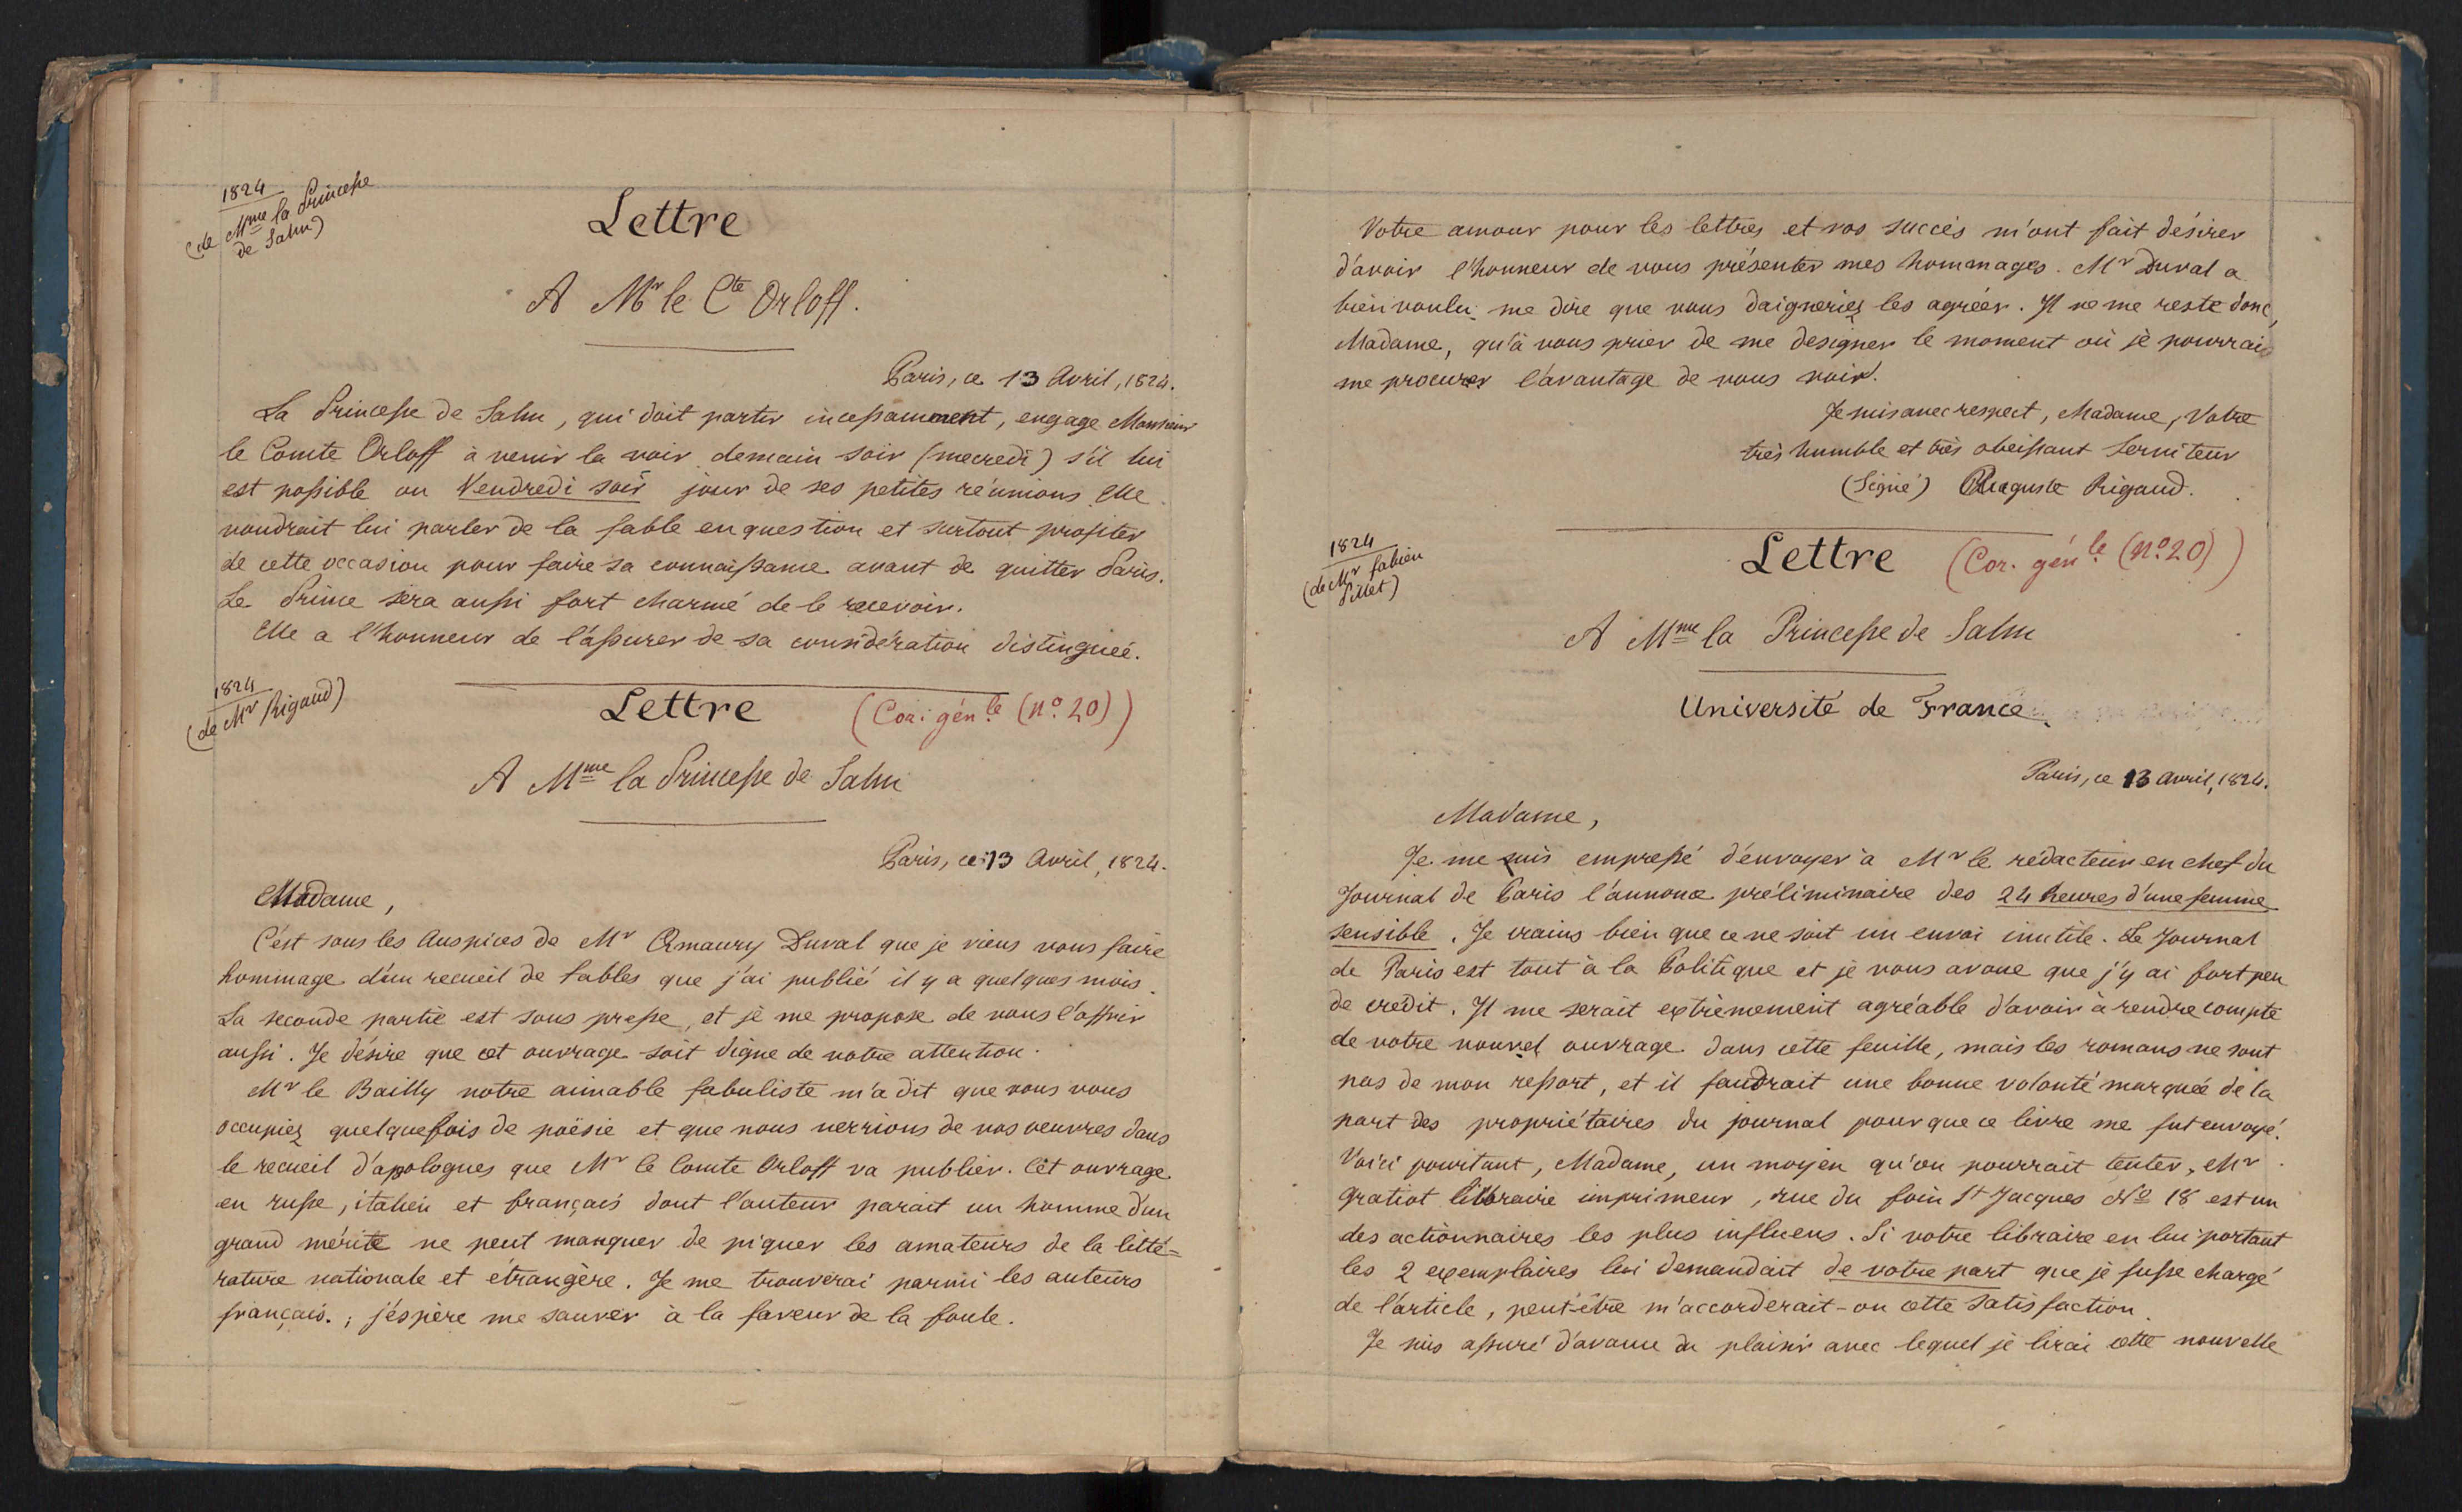 1824
(de Mme la Princesse
de Salm)
Lettre
A Mr le Cte Orloff.
Paris, ce 13 Avril, 1824.
La Princesse de Salm, qui doit partir incessamment, engage Monsieur
le Comte Orloff à venir la voir demain soir (mecredi) s'il lui
est possible ou Vendredi soir jour de ses petites réunions Elle
voudrait lui parler de la fable en question et surtout profiter
de cette occasion pour faire sa connaissance avant de quitter Paris.
Le Prince sera aussi fort charmé de le recevoir.
Elle a l'honneur de l'assurer de sa considération distinguée.
1824
(de Mr Rigaud)
Lettre (Cor. génle (no. 20))
A Mme la Princesse de Salm
Paris, ce 13 Avril, 1824.
Madame,
C'est sous les Auspices de Mr Amaury Duval que je viens vous faire
hommage d'un recueil de fables que j'ai publié il y a quelques mois.
La seconde partie est sous presse, et je me propose de vous l'offrir
aussi. Je désire que cet ouvrage soit digne de votre attention.
Mr le Bailly notre aimable fabuliste m'a dit que vous vous
occupiez quelquefois de poësie et que nous verrions de vos oeuvres dans
le recueil d'apologues que Mr le Comte Orloff va publier. Cet ouvrage
en russe, italien et français dont l'auteur parait un homme d'un
grand mérite ne peut manquer de piquer les amateurs de la litté=
rature nationale et etrangère. Je me trouverai parmi les auteurs
français. ; j'espère me sauver à la faveur de la foule.
Votre amour pour les lettres et vos succès m'ont fait désirer
d'avoir l'honneur de vous présenter mes hommages. Mr Duval a
bien voulu me dire que vous daigneriez les agréer. Il ne me reste donc,
Madame, qu'à vous prier de me designer le moment où je pourrais
me procurer l'avantage de vous voir.
Je suis avec respect, Madame, Votre
très humble et très obeissant Serviteur
(Signé) Auguste Rigaud.
1824
(de Mr Fabien
Pillet)
Lettre (Cor. génle (no. 20))
A Mme la Princesse de Salm
Université de France.
Paris, ce 13 avril, 1824.
Madame,
Je me suis empressé d'envoyer à Mr le rédacteur en chef du
Journal de Paris l'annonce préliminaire des 24 heures d'une femme
sensible. Je crains bien que ce ne soit un envoi inutile. Le Journal
de Paris est tout à la Politique et je vous avoue que j'y ai fort peu
de credit. Il me serait extrèmement agréable d'avoir à rendre compte
de votre nouvel ouvrage dans cette feuille, mais les romans ne sont
pas de mon ressort, et il faudrait une bonne volonté marquée de la
part des propriétaires du journal pour que ce livre me fut envoyé.
Voici pourtant, Madame, un moyen qu'on pourrait tenter. Mr
Gratiot libraire imprimeur, rue du foin St Jacques No 18 est un
des actionnaires les plus influens. Si votre libraire en lui portant
les 2 exemplaires lui demandait de votre part que je fusse chargé
de l'article, peut-être m'accorderait-on cette satisfaction.
Je suis assuré d'avance du plaisir avec lequel je lirai cette nouvelle